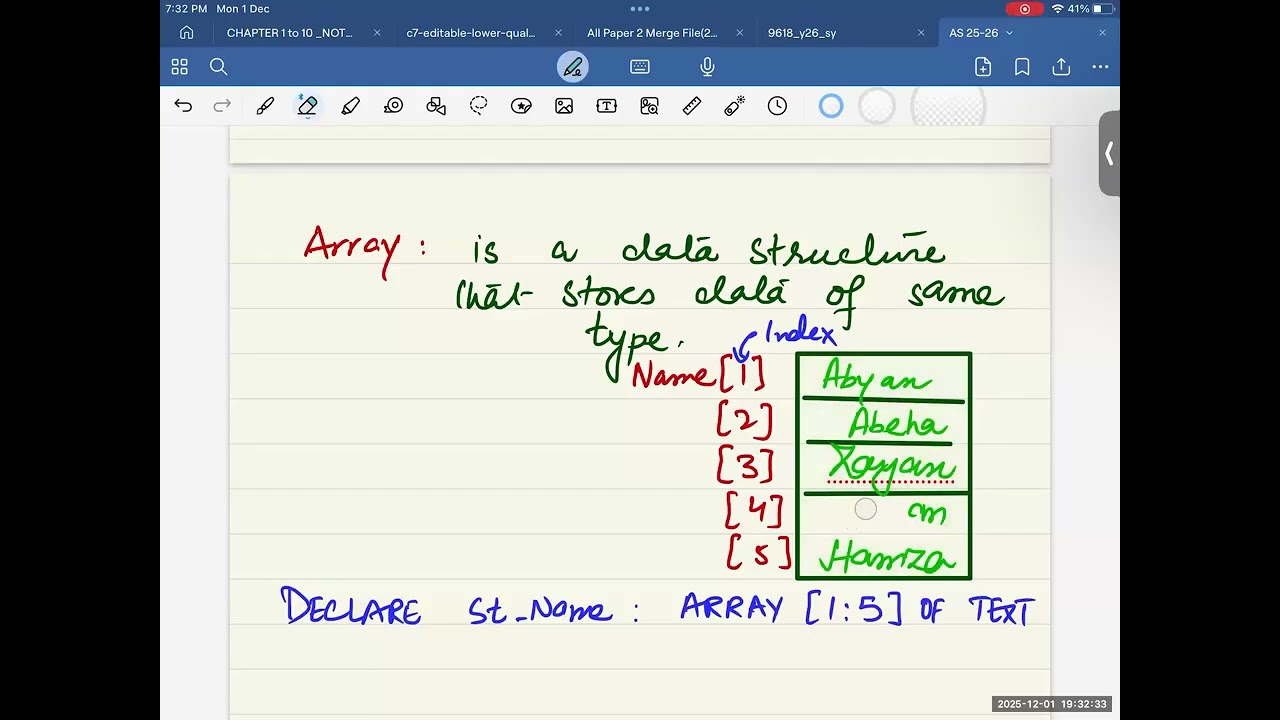 7:32 PM Mon 1 Dec
41%
CHAPTER 1 to 10 _NOT... c7-editable-lower-qual... All Paper 2 Merge File(2... 9618_y26_sy AS 25-26
Array : is a data structure
that stores data of same
type.
Index
Name [1] Abyan
[2] Abeha
[3] Zayan
[4]
[5] Hamza
DECLARE St_Name : ARRAY [1:5] OF TEXT
2025-12-01 19:32:33